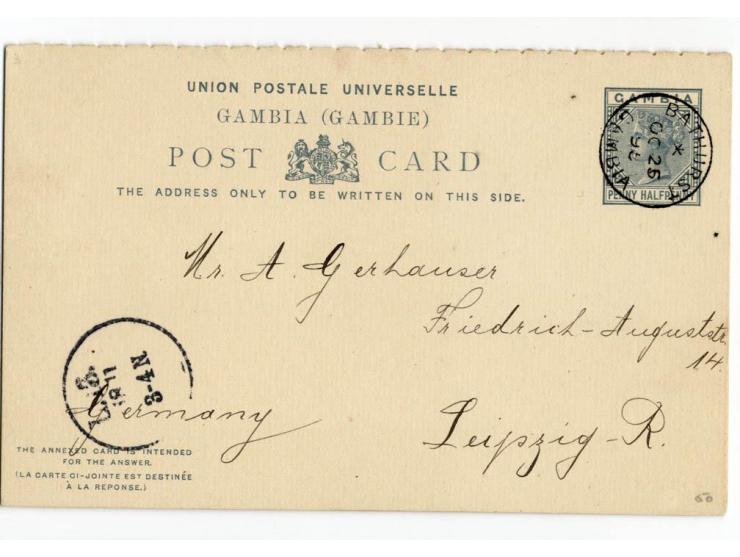 UNION POSTALE UNIVERSELLE
GAMBIA (GAMBIE)
POST CARD
THE ADDRESS ONLY TO BE WRITTEN ON THIS SIDE.
GAMBIA
PENNY HALFPENNY
BATHURST
OC 25
GAMBIA
Mr. A. Gerhauser
Friedrich-Auguststr
14.
Germany
Leipzig-R.
3-4N
THE ANNEXED CARD IS INTENDED
FOR THE ANSWER.
(LA CARTE CI-JOINTE EST DESTINÉE
À LA REPONSE.)